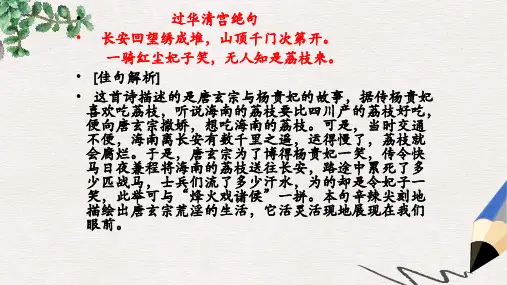 • 过华清宫绝句
• 长安回望绣成堆，山顶千门次第开。
一骑红尘妃子笑，无人知是荔枝来。
• [佳句解析]
• 这首诗描述的是唐玄宗与杨贵妃的故事，据传杨贵妃
喜欢吃荔枝，听说海南的荔枝要比四川产的荔枝好吃，
便向唐玄宗撒娇，想吃海南的荔枝。可是，当时交通
不便，海南离长安有数千里之遥，运得慢了，荔枝就
会腐烂。于是，唐玄宗为了博得杨贵妃一笑，传令快
马日夜兼程将海南的荔枝送往长安，路途中累死了多
少匹战马，士兵们流了多少汗水，为的却是令妃子一
笑，此举可与“烽火戏诸侯”一拼。本句辛辣尖刻地
描绘出唐玄宗荒淫的生活，它活灵活现地展现在我们
眼前。